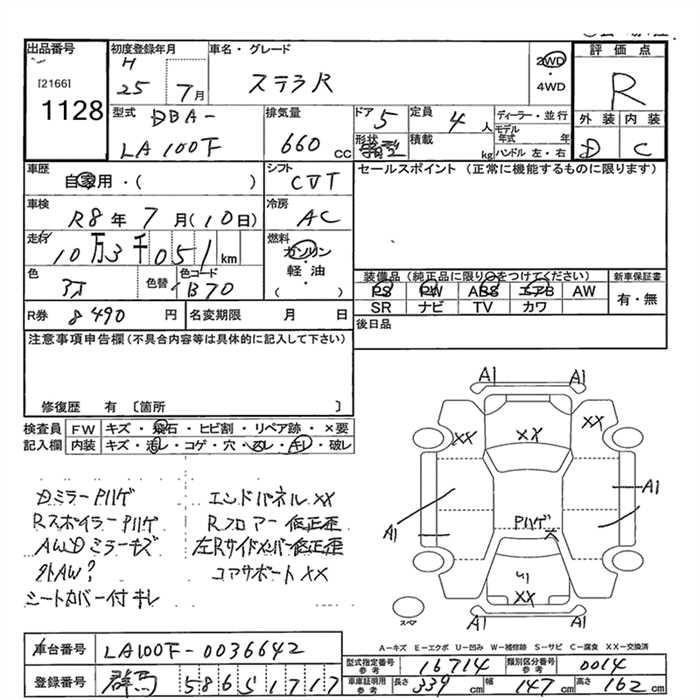 出品番号 初度登録年月 車名・グレード 評価点
[2166] H 25 7月 ステラR 2WD ・ 4WD R
1128 型式 DBA- 排気量 ドア 5 定員 4人 ディーラー・並行 外装 内装
LA100F 660cc 形状 積載 kg モデル年式 年 ハンドル 左・右 D C
車歴 自家用・( ) シフト CVT セールスポイント (正常に機能するものに限ります)
車検 R8年7月(10日) 冷房 AC
走行 10万3千051km 燃料 ガソリン 軽油 ( )
色 色替 色コード B70 装備品(純正品に限り○をつけてください) 新車保証書
PS PW ABS エアB AW 有・無
SR ナビ TV カワ
R券 8490円 名変期限 月 日 後日品
注意事項申告欄(不具合内容等は具体的に記入して下さい)
修復歴 有 〔箇所 〕
検査員 FW キズ・飛石・ヒビ割・リペア跡・×要
記入欄 内装 キズ・汚レ・コゲ・穴・スレ・キレ・破レ
A1 A1
XX XX XX
A1 A1
Pハゲ
XX
A1 A1
スペア
Dミラー Pハゲ エンドパネル XX
Rスポイラー Pハゲ Rフロアー 修正歪
AWDミラーキズ 左Rサイドメンバー修正歪
外AW? コアサポート XX
シートカバー付 キレ
A-キズ E-エクボ U-凹み W-補修跡 S-サビ C-腐食 XX-交換済
車台番号 LA100F-0036642 型式指定番号 参考 16714 類別区分番号 参考 0014
登録番号 群馬 586 5 1717 車庫証明用 参考 長さ 339cm 幅 147cm 高さ 162cm